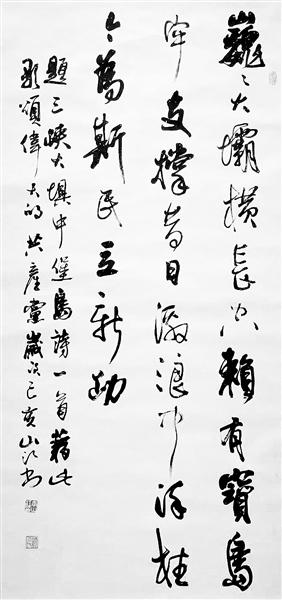 巍〻大壩橫長江賴有寶島
牢支撐昔日激浪中流柱
今為斯民立新勛
題三峽大壩中堡島詩一首藉此
歌頌偉大的共產黨歲次己亥山江書